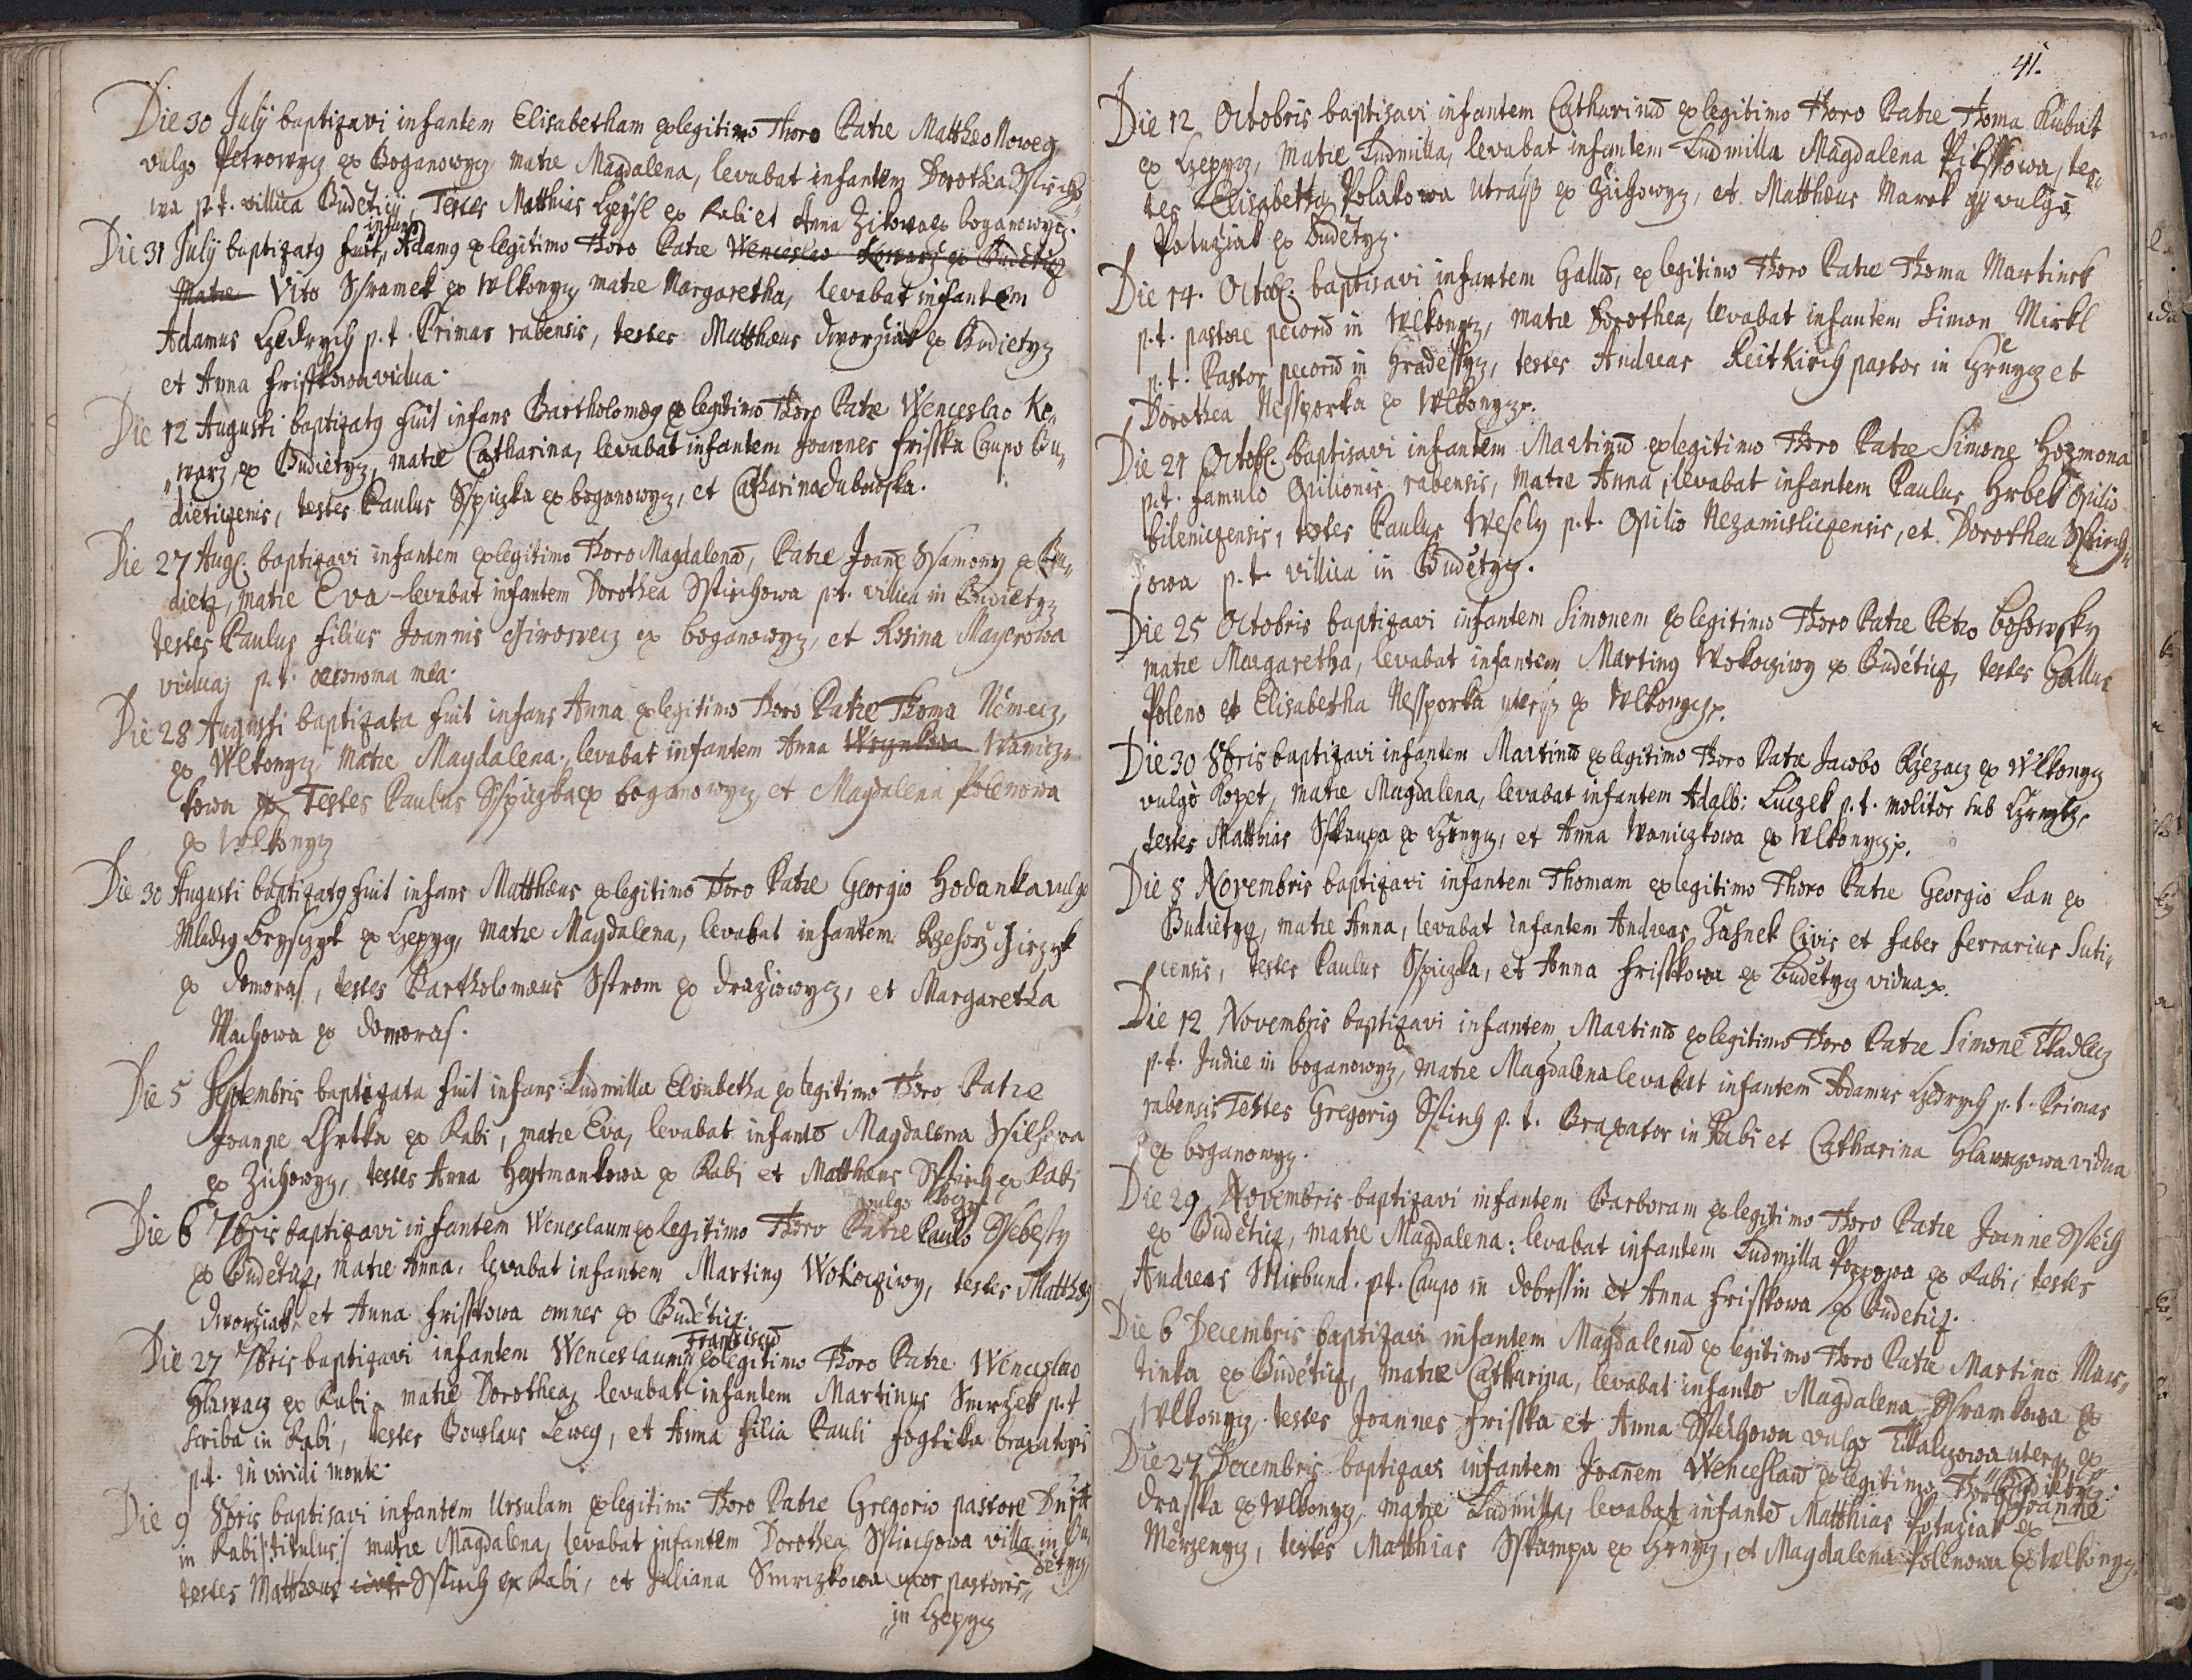 Die 30 July baptizavi infantem Elisabetham ex legitimo Thoro Patre Matthæo Noweg
vulgo Petrowycz ex Boganowycz matre Magdalena, levabat infantem Dorothea Sstircho
wa p.t. villica Budeticij, Testes Matthias Czeysl ex Rabi et Anna Zikowa ex boganowycz.
Die 31 July baptizatus fuit infans Adamus ex legitimo Thoro Patre Wenceslao Kowarz ex Budeticz
Matre Vito Sframek ex Wlkonycz matre Margaretha, levabat infantem
Adamus Czedrych p.t. Primas rabensis, testes Matthæus dworziak ex Budietycz
et Anna frisskowa vidua.
Die 12 Augusti baptizatus fuit infans Bartholomæus ex legitimo Thoro Patre Wenceslao Ko„
„warz, ex Budietycz, matre Catharina, levabat infantem Joannes frisska Caupo Bu„
dieticzenis, testes Paulus Sspiczka ex boganowycz, et Catharina dubowska.
Die 27 Aug. baptizavi infantem ex legitimo Thoro Magdalenam, Patre Joane Ssamony ex Bu„
dietz, matre Eva levabat infantem Dorothea Sstirchowa p.t. villica in Budietycz
testes Paulus filius Joannis Jirowecz ex boganowycz, et Rosina Mayerowa
vidua, p.t. oeconoma mea.
Die 28 Augusti baptizata fuit infans Anna ex legitimo Thoro Patre Thoma Nemecz,
ex Wlkonycz Matre Magdalena, levabat infantem Anna Waniczkowa Wanicz„
kowa ex Testes Paulus Sspiczka ex boganowycz, et Magdalena Polenowa
ex Wlkonycz
Die 30 Augusti baptizatus fuit infans Matthæus ex legitimo Thoro Patre Georgio Hodanka vulgo
Mladey Bryschzyk ex Czepycz, Matre Magdalena, levabat infantem Rzehorz Jirzyk
ex domoras, testes Bartholomæus Sstrom ex drazowycz, et Margaretha
Machowa ex domoras.
Die 5 Septembris baptizata fuit infans Ludmilla Elisabetha ex legitimo Thoro Patre
Joanne Chrtka ex Rabi, matre Eva, levabat infantem Magdalena Wilhowa
ex Zichowycz, testes Anna Heytmankowa ex Rabi et Matthæus Sstirch ex Rabi
vulgo
Die 6 7bris baptizavi infantem Wenceslaum ex legitimo Thoro Patre Paulo Ssebesty
ex Budeticz, Matre Anna, levabat infantem Martinus Wokocziwy, testes Matthæus
dworziak, et Anna frisskowa omnes ex Budeticz.
Franciscum
Die 27 7bris baptizavi infantem Wenceslaum ex legitimo Thoro Patre Wenceslao
Hlawacz ex Rabi, matre Dorothea, levabat infantem Martinus Smrzek p.t
scriba in Rabi, testes Bouslaus Leweg, et Anna filia Pauli foglika braxatoris
p.t. in viridi monte.
Die 9 8bris baptisavi infantem Ursulam ex legitimo Thoro Patre Gregorio pastore
in Rabi /:titulus:/ matre Magdalena, levabat infantem Dorothea Sstirchowa villica in Bu„
detycz,
testes Matthæus Sstirch ex Rabi, et Juliana Smrczkowa uxor pastoris„
„in Czepycz
41.
Die 12 Octobris baptisavi infantem Catharinam ex legitimo Thoro Patre Thoma Kubat
ex Czepycz, Matre Ludmilla, levabat infantem Ludmilla Magdalena Pikssowa, tes„
tes Elisabetha Polakowa ex Zichowycz, et Matthæus Marek vulgo
Potuziak ex Budetycz.
Die 14. Octob. baptisavi infantem Gallum, ex legitimo Thoro Patre Thoma Martinek
p.t. pastore pecorum in Wlkonycz, matre Dorothea, levabat infantem Simon Mirkl
p.t. Pastor pecorum in Hradesstycz, testes Andreas Keitkirch pastor in Hrnycz et
Dorothea Nessporka ex Wlkonycz.
Die 21 Octob. baptisavi infantem Martinum ex legitimo Thoro Patre Simone Hozmona
p.t. famulo Opilionis rabensis, Matre Anna, levabat infantem Paulus Hrbek opilio
bileniczensis, testes Paulus Wesely p.t. Opilio Nezamisliczensis, et Dorothea Sstirch„
owa p.t. villica in Budetycz.
Die 25 Octobris baptizavi infantem Simonem ex legitimo Thoro Patre Petro bosowsky
matre Margaretha, levabat infantem Martinus Wokocziwy ex Budéticz, testes Gallus
Poleno et Elisabetha Nessporka ex Wlkonycz.
Die 30 8bris baptizavi infantem Martinum ex legitimo Thoro Patre Jacobo Rzezacz ex Wlkonycz
vulgo Kopet, matre Magdalena, levabat infantem Adalb: Luczek p.t. molitor sub
testes Matthias Sskaupa ex Hrnycz, et Anna Waniczkowa ex Wlkonycz.
Die 8 Novembris baptizavi infantem Thomam ex legitimo Thoro Patre Georgio Lan ex
Budietycz, matre Anna, levabat infantem Andreas Jasnek Civis et faber ferrarius Suti„
censis, testes Paulus Sspiczka, et Anna frisskowa ex Budetycz vidua.
Die 12 Novembris baptizavi infantem Martinum ex legitimo Thoro Patre Simone Tkadlecz
p.t. Judice in boganowycz, matre Magdalena levabat infantem Adamus Czedrych p.t. Primas
rabensis Testes Gregorius Sstirch p.t. Braxator in Rabi et Catharina Hlawaczowa vidua
ex boganowycz.
Die 29 Novembris baptizavi infantem Barboram ex legitimo Thoro Patre Joanne Sstech
ex Budeticz, matre Magdalena: levabat infantem Ludmilla Poppowa ex Rabi, testes
Andreas Mirbund. p.t. Caupo in dobrssin et Anna frisskowa ex Budeticz.
Die 6 Decembris baptizavi infantem Magdalenam ex legitimo Thoro Patre Martino Mar„
tinka ex Budéticz, matre Catharina, levabat infantem Magdalena Sramkowa ex
Wlkonycz testes Joannes frisska et Anna Sstechowa vulgo Tkalczowa uterque ex
Budietycz.
Die 27 Decembris baptizavi infantem Joanem Wenceslaum ex legitimo Thoro Joanne
drasska ex Wlkonycz matre Ludmilla, levabat infantem Matthias Potuziak ex
Merzenycz, testes Matthias Sskaupa ex Hrnycz, et Magdalena Polenowa ex Wlkonycz.